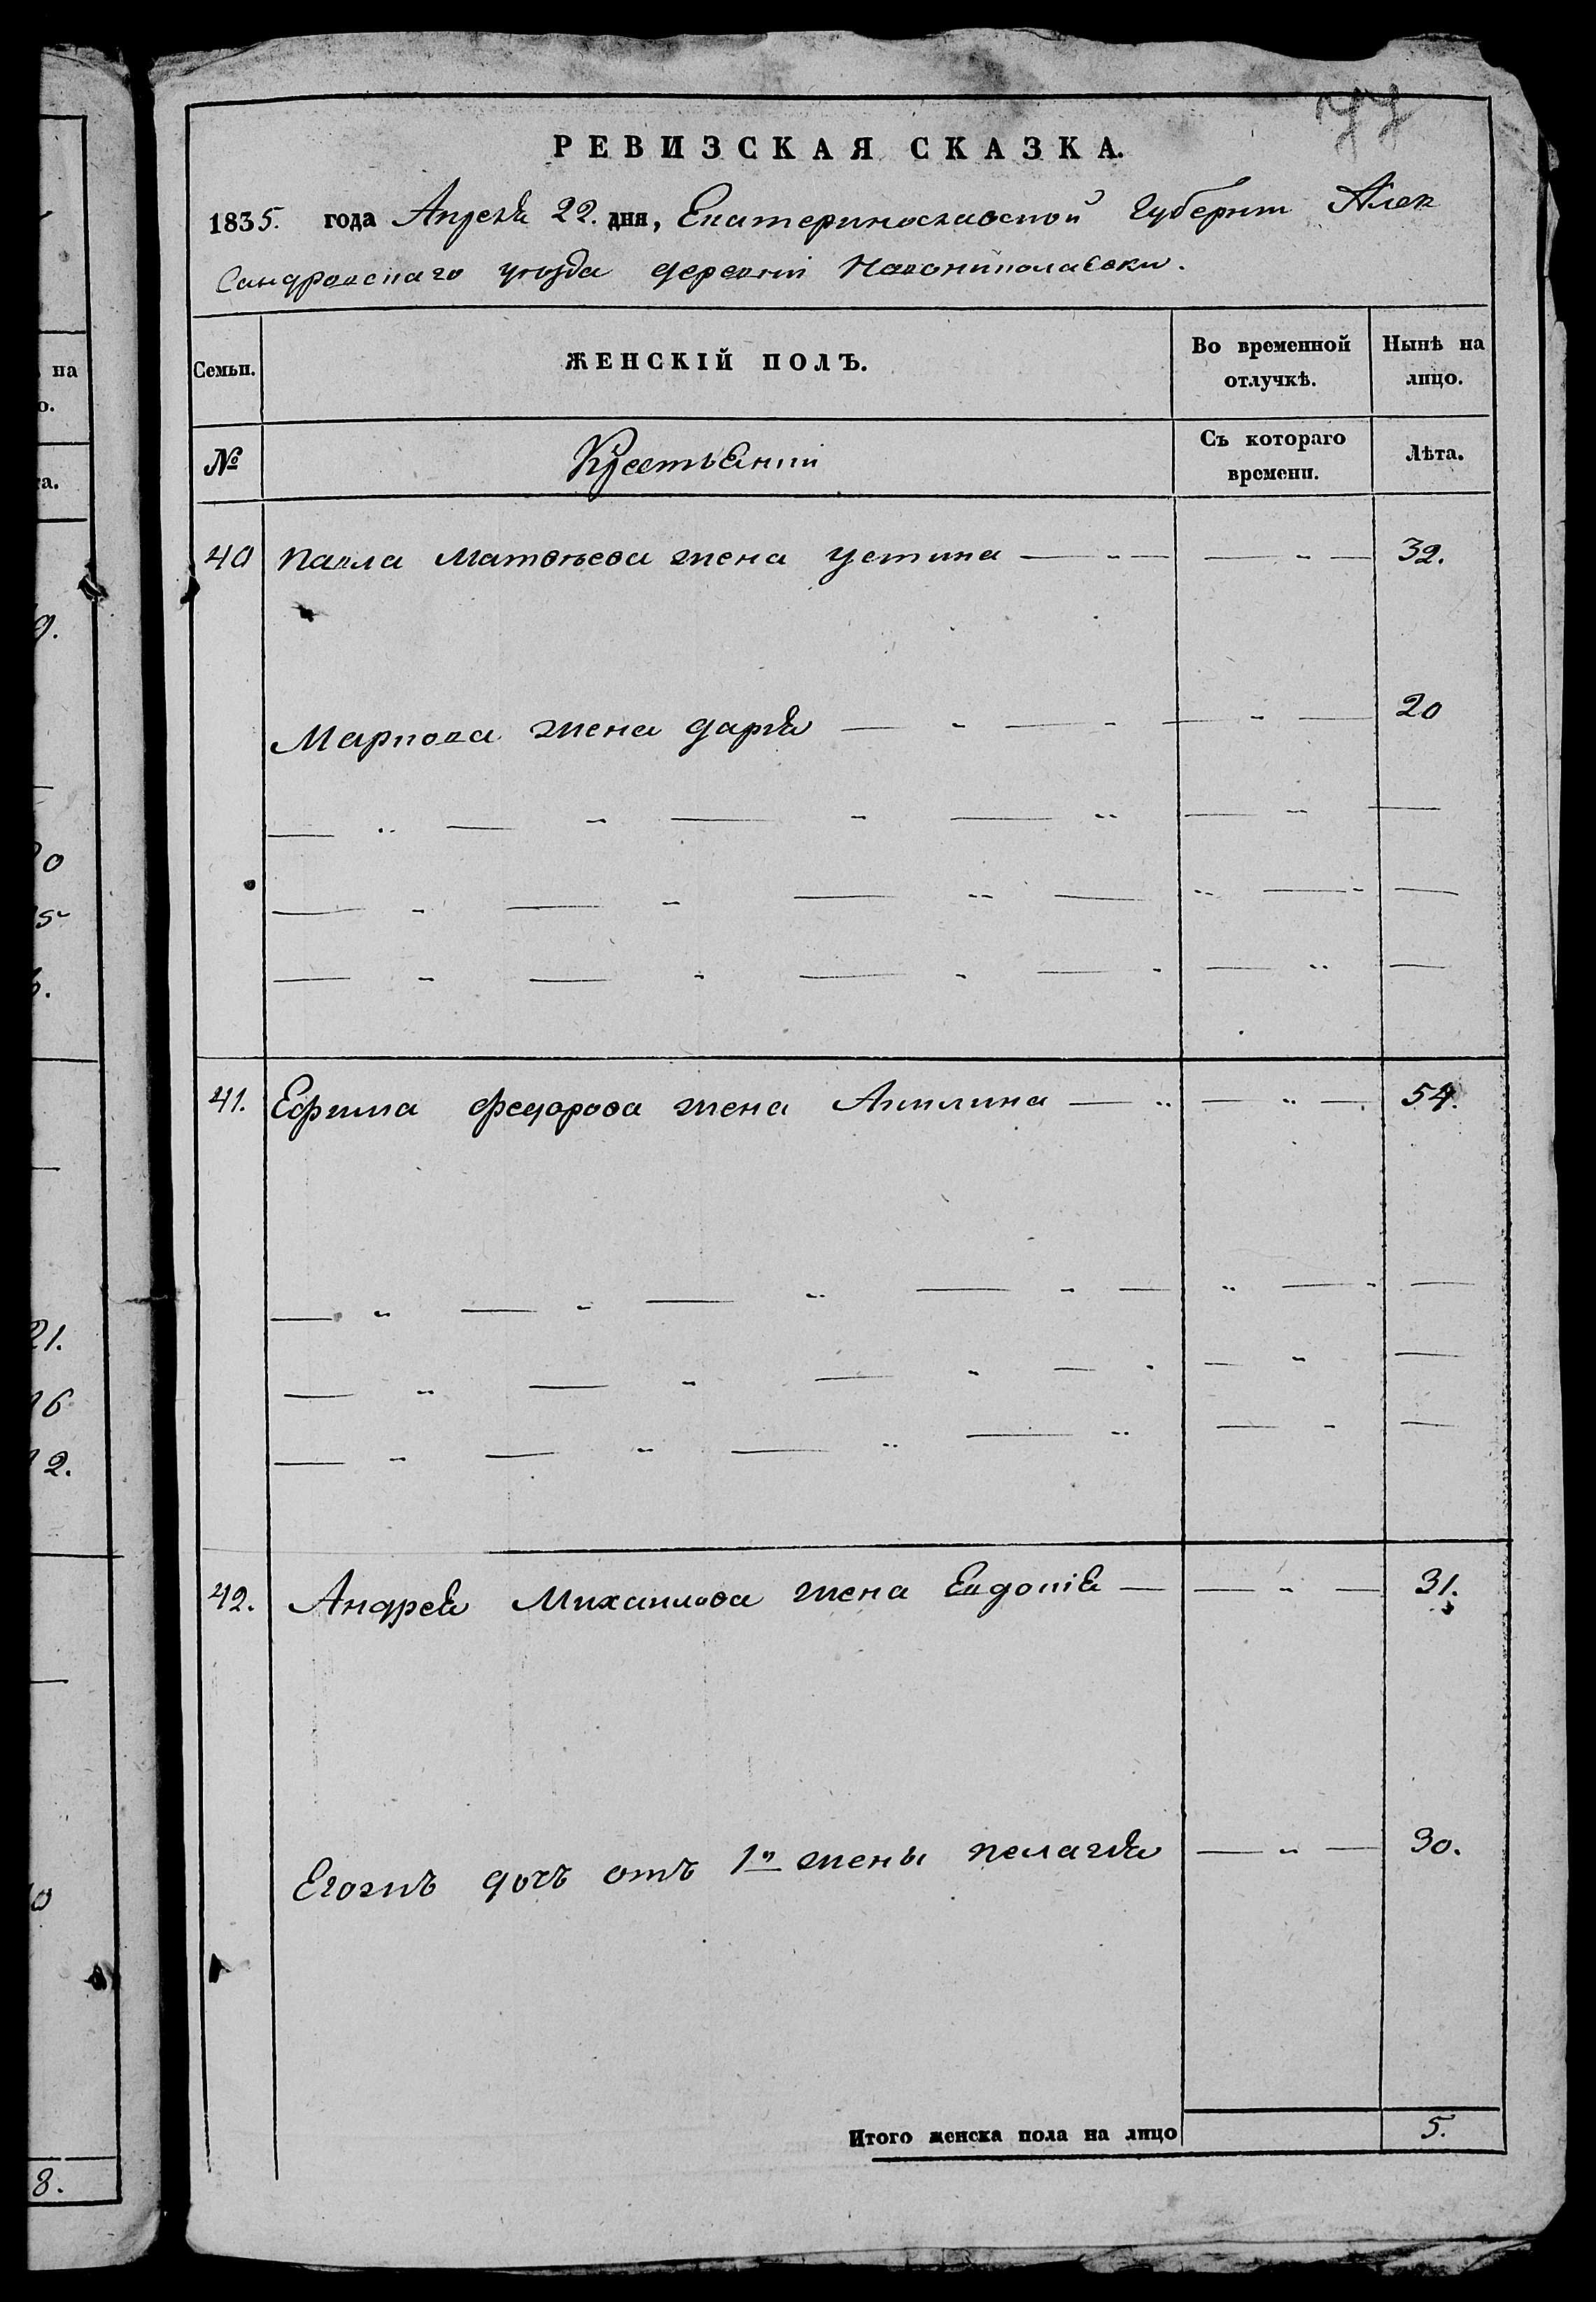 77
РЕВИЗСКАЯ СКАЗКА.
1835. года Апреля 22. дня, Екатериносхавской Губерніи Алек
сандровскаго уезда деревни Новониколаевки.
Семьи. ЖЕНСКІЙ ПОЛЪ. Во временной отлучкѣ. Нынѣ на лицо.
№ Крестьянки Съ котораго времени. Лѣта.
40 Павла Матвѣева жена Устина — „ — — „ — 32.
Маркова жена Дарья — „ — „ — „ — 20
41. Ефима Федорова жена Акилина — „ — „ — 54.
42. Андрея Михаилова жена Евдокія — — „ — 31.
Егожъ дочь отъ 1й жены Пелагѣя — „ — 30.
Итого женска пола на лицо 5.
на
о.
та.
9.
0
5
21.
16
12.
0
8.